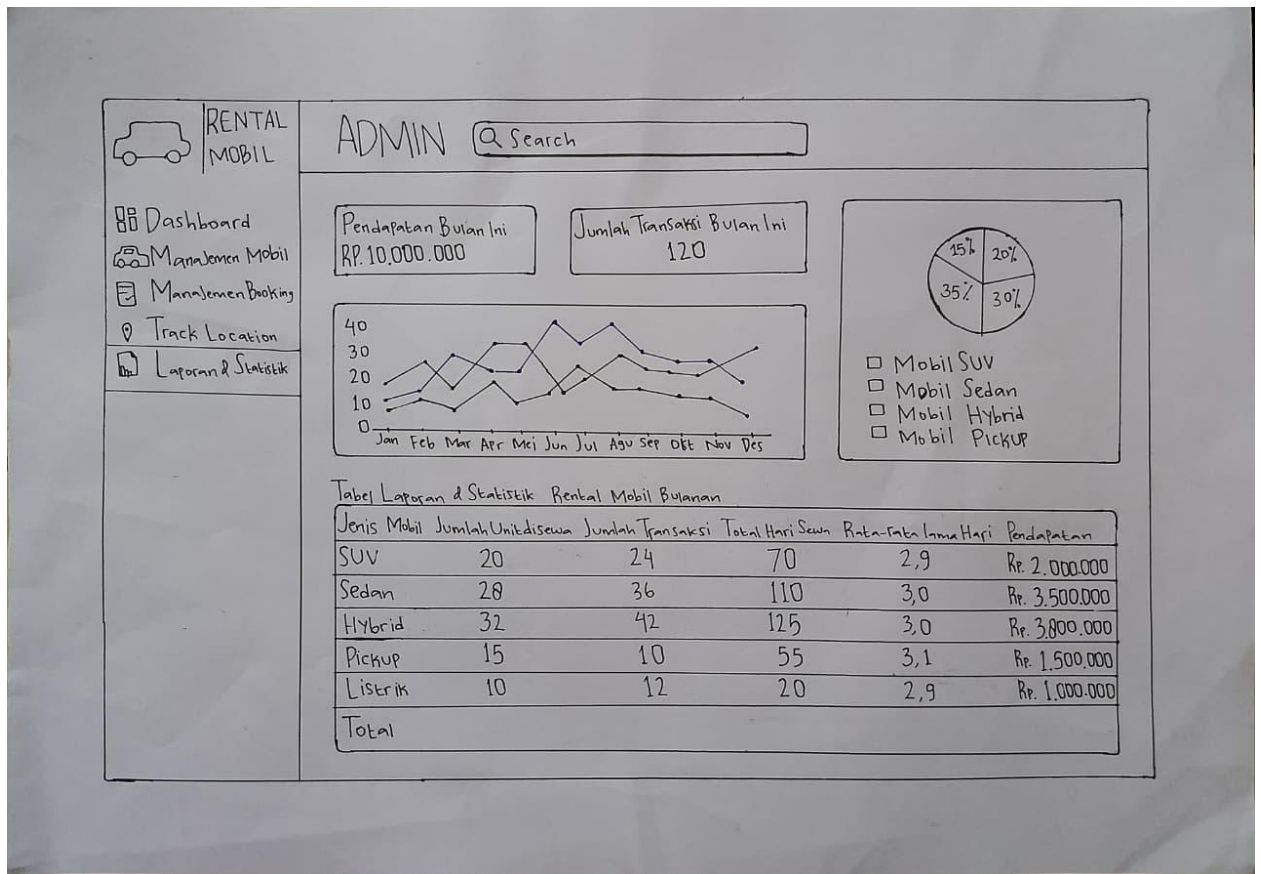 RENTAL
MOBIL
ADMIN
Search
Dashboard
Manajemen Mobil
Manajemen Booking
Track Location
Laporan & Statistik
Pendapatan Bulan Ini
RP. 10.000.000
Jumlah Transaksi Bulan Ini
120
15% 20%
35% 30%
Mobil SUV
Mobil Sedan
Mobil Hybrid
Mobil Pickup
40
30
20
10
0
Jan Feb Mar Apr Mei Jun Jul Agu Sep Okt Nov Des
Tabel Laporan & Statistik Rental Mobil Bulanan
Jenis Mobil Jumlah Unit disewa Jumlah Transaksi Total Hari Sewa Rata-rata lama Hari Pendapatan
SUV 20 24 70 2,9 Rp. 2.000.000
Sedan 28 36 110 3,0 Rp. 3.500.000
Hybrid 32 42 125 3,0 Rp. 3.800.000
Pickup 15 10 55 3,1 Rp. 1.500.000
Listrik 10 12 20 2,9 Rp. 1.000.000
Total